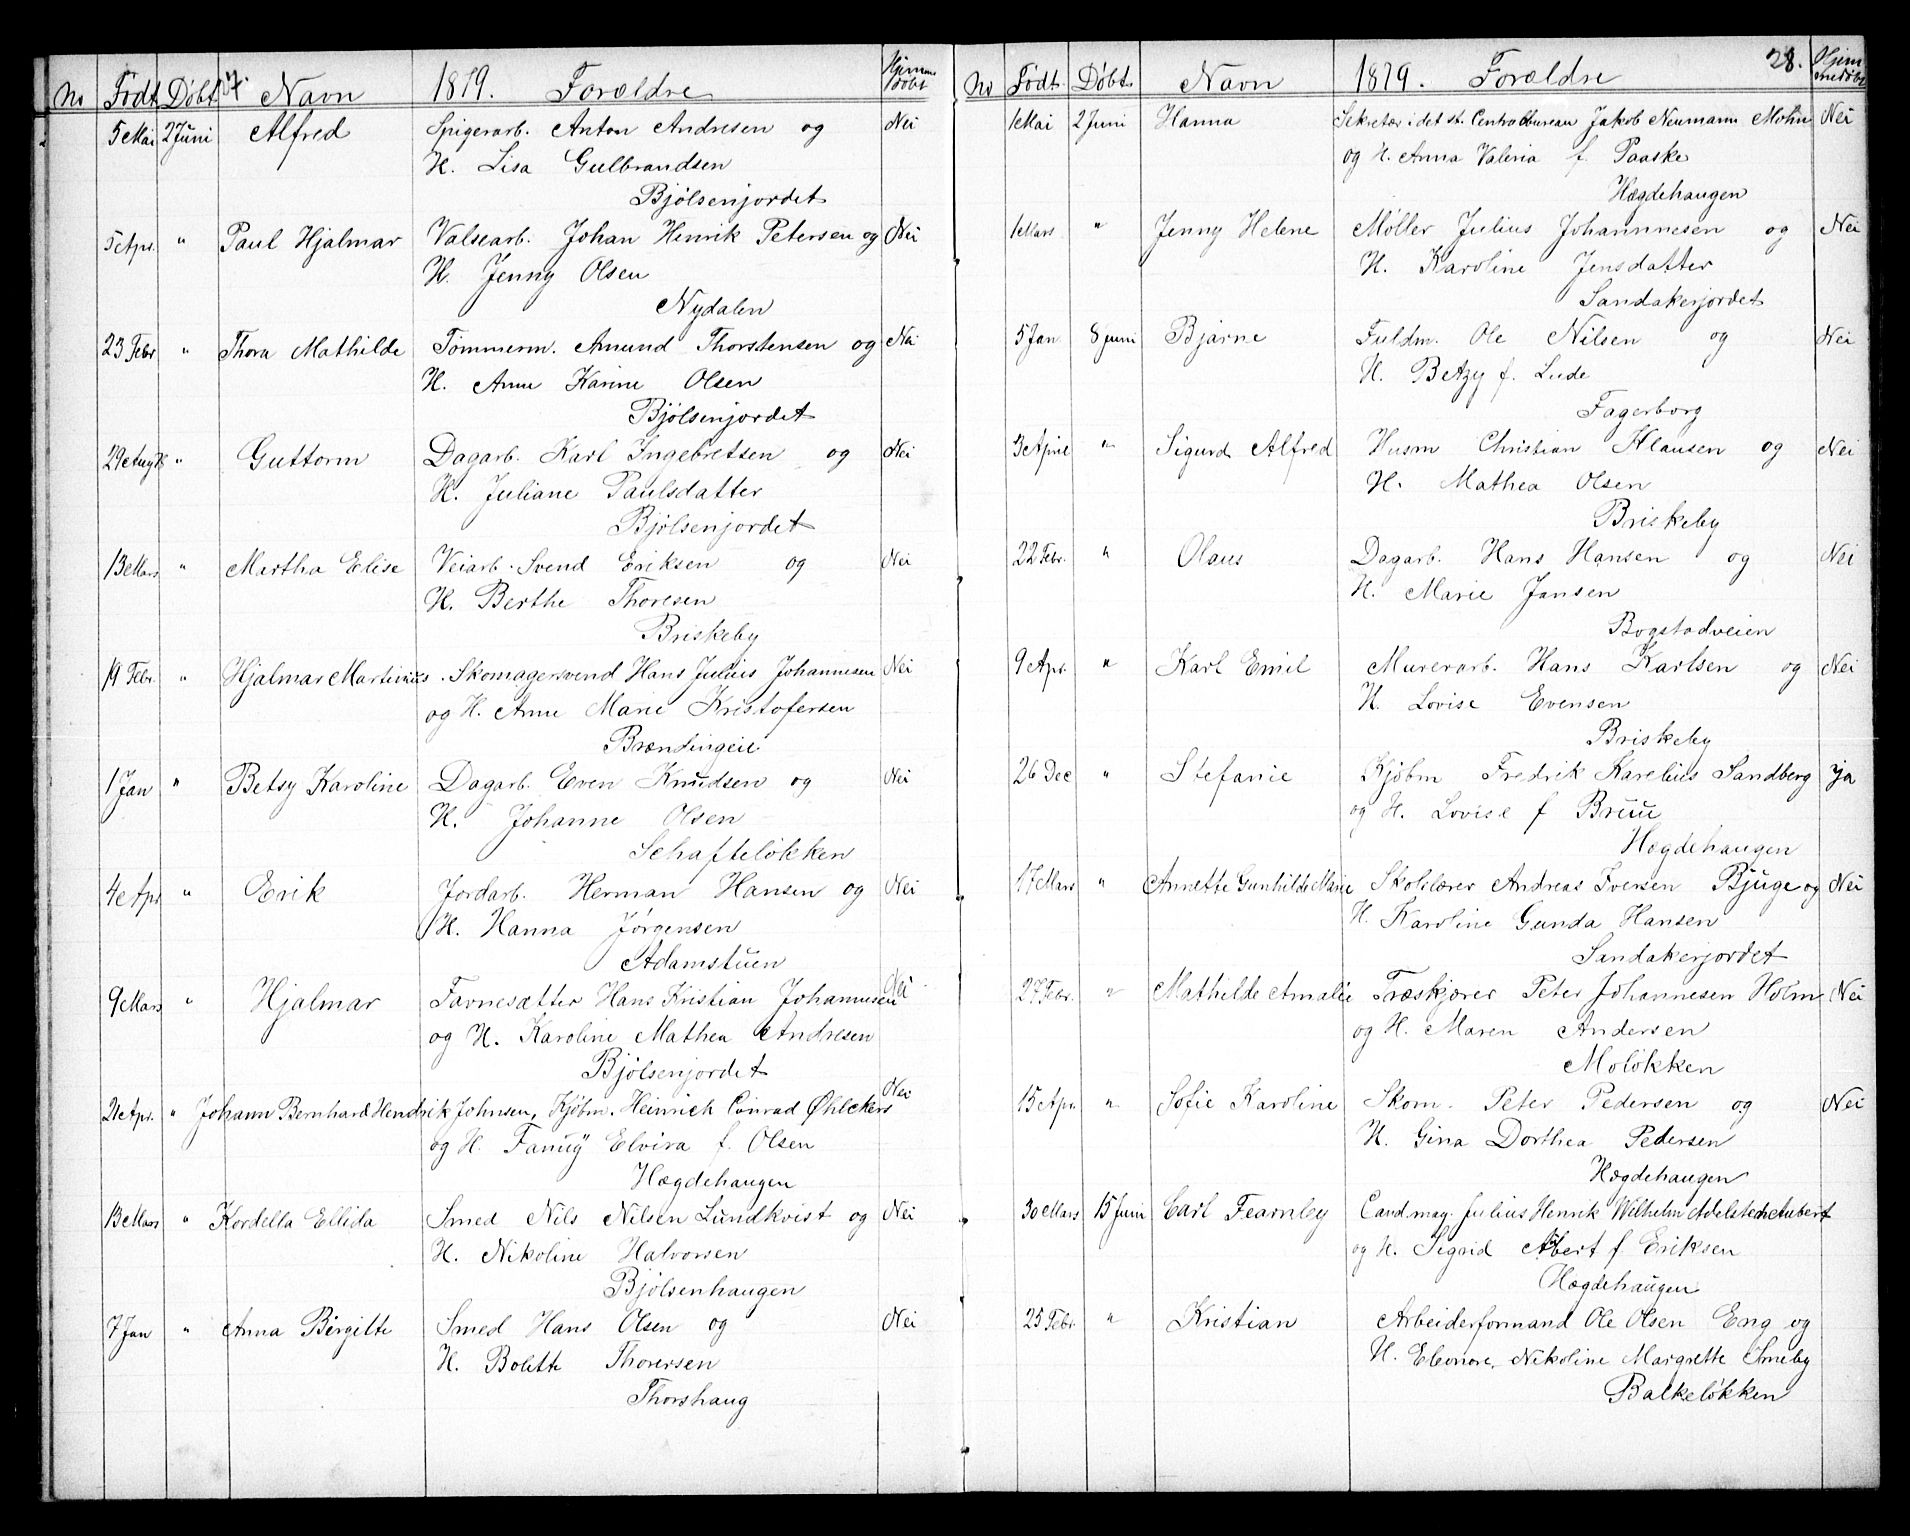 No Født Døbt Navn 1879. Forældre Hjemmedøbt
5 Mai 2 Juni Alfred Spigerarb. Anton Andresen og Nei
H. Lisa Gulbrandsen
Bjølsenjordet
5 Apr. " Paul Hjalmar Valsearb. Johan Henrik Petersen og Nei
H. Jenny Olsen
Nydalen
23 Febr " Thora Mathilde Tømmerm. Amund Thorstensen og Nei
H. Anne Karine Olsen
Bjølsenjordet
29 Aug 78 " Guttorm Dagarb. Karl Ingebretsen og Nei
H. Juliane Paulsdatter
Bjølsenjordet
13 Mars " Martha Elise Veiarb. Svend Eriksen og Nei
H. Berthe Thoresen
Briskeby
19 Febr. " Hjalmar Martinius Skomagersvend Hans Julius Johannesen Nei
og H. Anne Marie Kristofersen
Brændingeie
1 Jan " Betsy Karoline Dagarb. Even Knudsen og Nei
H. Johanne Olsen
Schafteløkken
4 Apr " Erik Jordarb. Herman Hansen og Nei
H. Hanna Jørgensen
Adamstuen
9 Mars " Hjalmar Favnesætter Hans Kristian Johannesen Nei
og H. Karoline Mathea Andresen
Bjølsenjordet
21 Apr. " Johann Bernhard Hendrik Johnsen, Kjøbm. Heinrich Conrad Øhlckers Nei
og H. Fanny Elvira f. Olsen
Hægdehaugen
13 Mars " Kordella Ellida Smed Nils Nilsen Lundkvist og Nei
H. Nikoline Halvorsen
Bjølsenhaugen
7 Jan " Anna Birgitte Smed Hans Olsen og Nei
H. Bolette Thorersen
Thorshaug
No Født Døbt. Navn 1879. Forældre 28. Hjemmedøbt
1 Mai 2 Juni Hanna Sekretær i det st. Centralbureau Jakob Neumann Mohn Nei
og H. Anna Valeria f. Paaske
Hægdehaugen
1 Mars " Jenny Helene Møller Julius Johannnesen og Nei
H. Karoline Jensdatter
Sandakerjordet
5 Jan 8 juni Bjarne Fuldm. Ole Nilsen og Nei
H. Betzy f. Lude
Fagerborg
3 April " Sigurd Alfred Husm Christian Klausen og Nei
H. Mathea Olsen
Briskeby
22 Febr. " Olaus Dagarb. Hans Hansen og Nei
H. Marie Jansen
Bogstadveien
9 Apr. " Karl Emil Murerarb. Hans Karlsen og Nei
H. Lovise Evensen
Briskeby
26 Dec " Stefanie Kjøbm Fredrik Karelius Sandberg Ja
og H. Lovise f Bruu
Hægdehaugen
17 Mars " Annette Gunhilde Marie Skolelærer Andreas Iversen Bjuge og Nei
H. Karoline Gunda Hansen
Sandakerjordet
27 Febr. " Mathilde Amalie Træskjærer Peter Johannesen Holm Nei
og H. Maren Andersen
Moløkken
15 Apr. " Sofie Karoline Skom. Peter Pedersen og Nei
H. Gina Dorthea Pedersen
Hægdehaugen
30 Mars 15 Juni Carl Fearnley Cand. mag. Julius Henrik Wilhelm Adelsten Aubert
og H. Sigrid Aubert f Eriksen
Hægdehaugen
25 Febr " Kristian Arbeiderformand Ole Olsen Eng og
H. Eleonore Nikoline Margrette Smeby
Balkeløkken